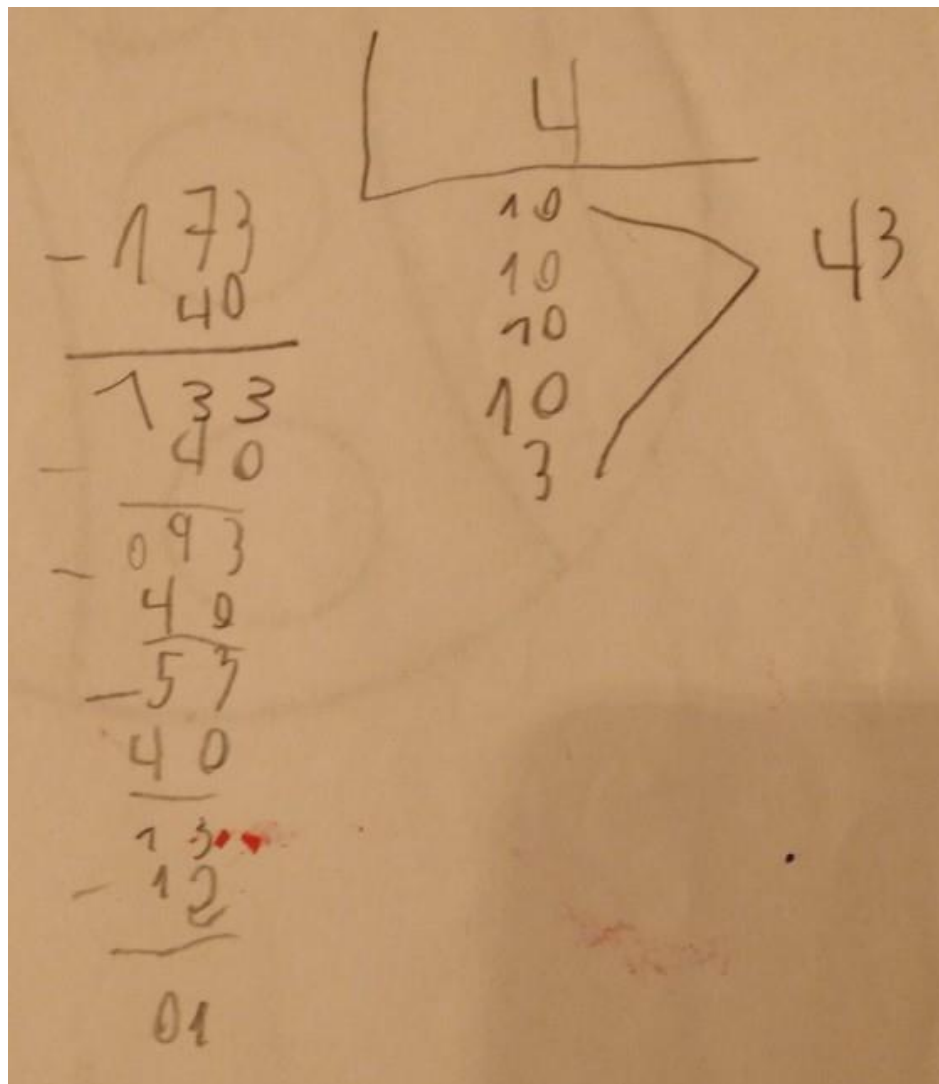 4
- 173
40
133
- 40
093
- 40
- 53
40
13
- 12
01
10
10
10
10
3
43